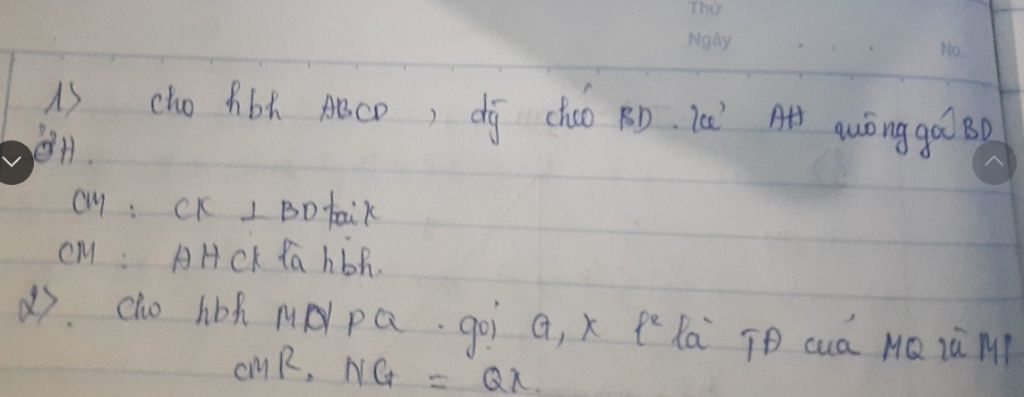 Thứ
Ngày
No.
1> cho hbh ABCD, đg chéo BD. kẻ AH vuông góc BD
ở H.
CM : CK ⊥ BD tại K
CM : AHCK là hbh.
2>. Cho hbh MNPQ. gọi G, K lần lượt là TĐ của MQ và NP
CMR. NG = QK.